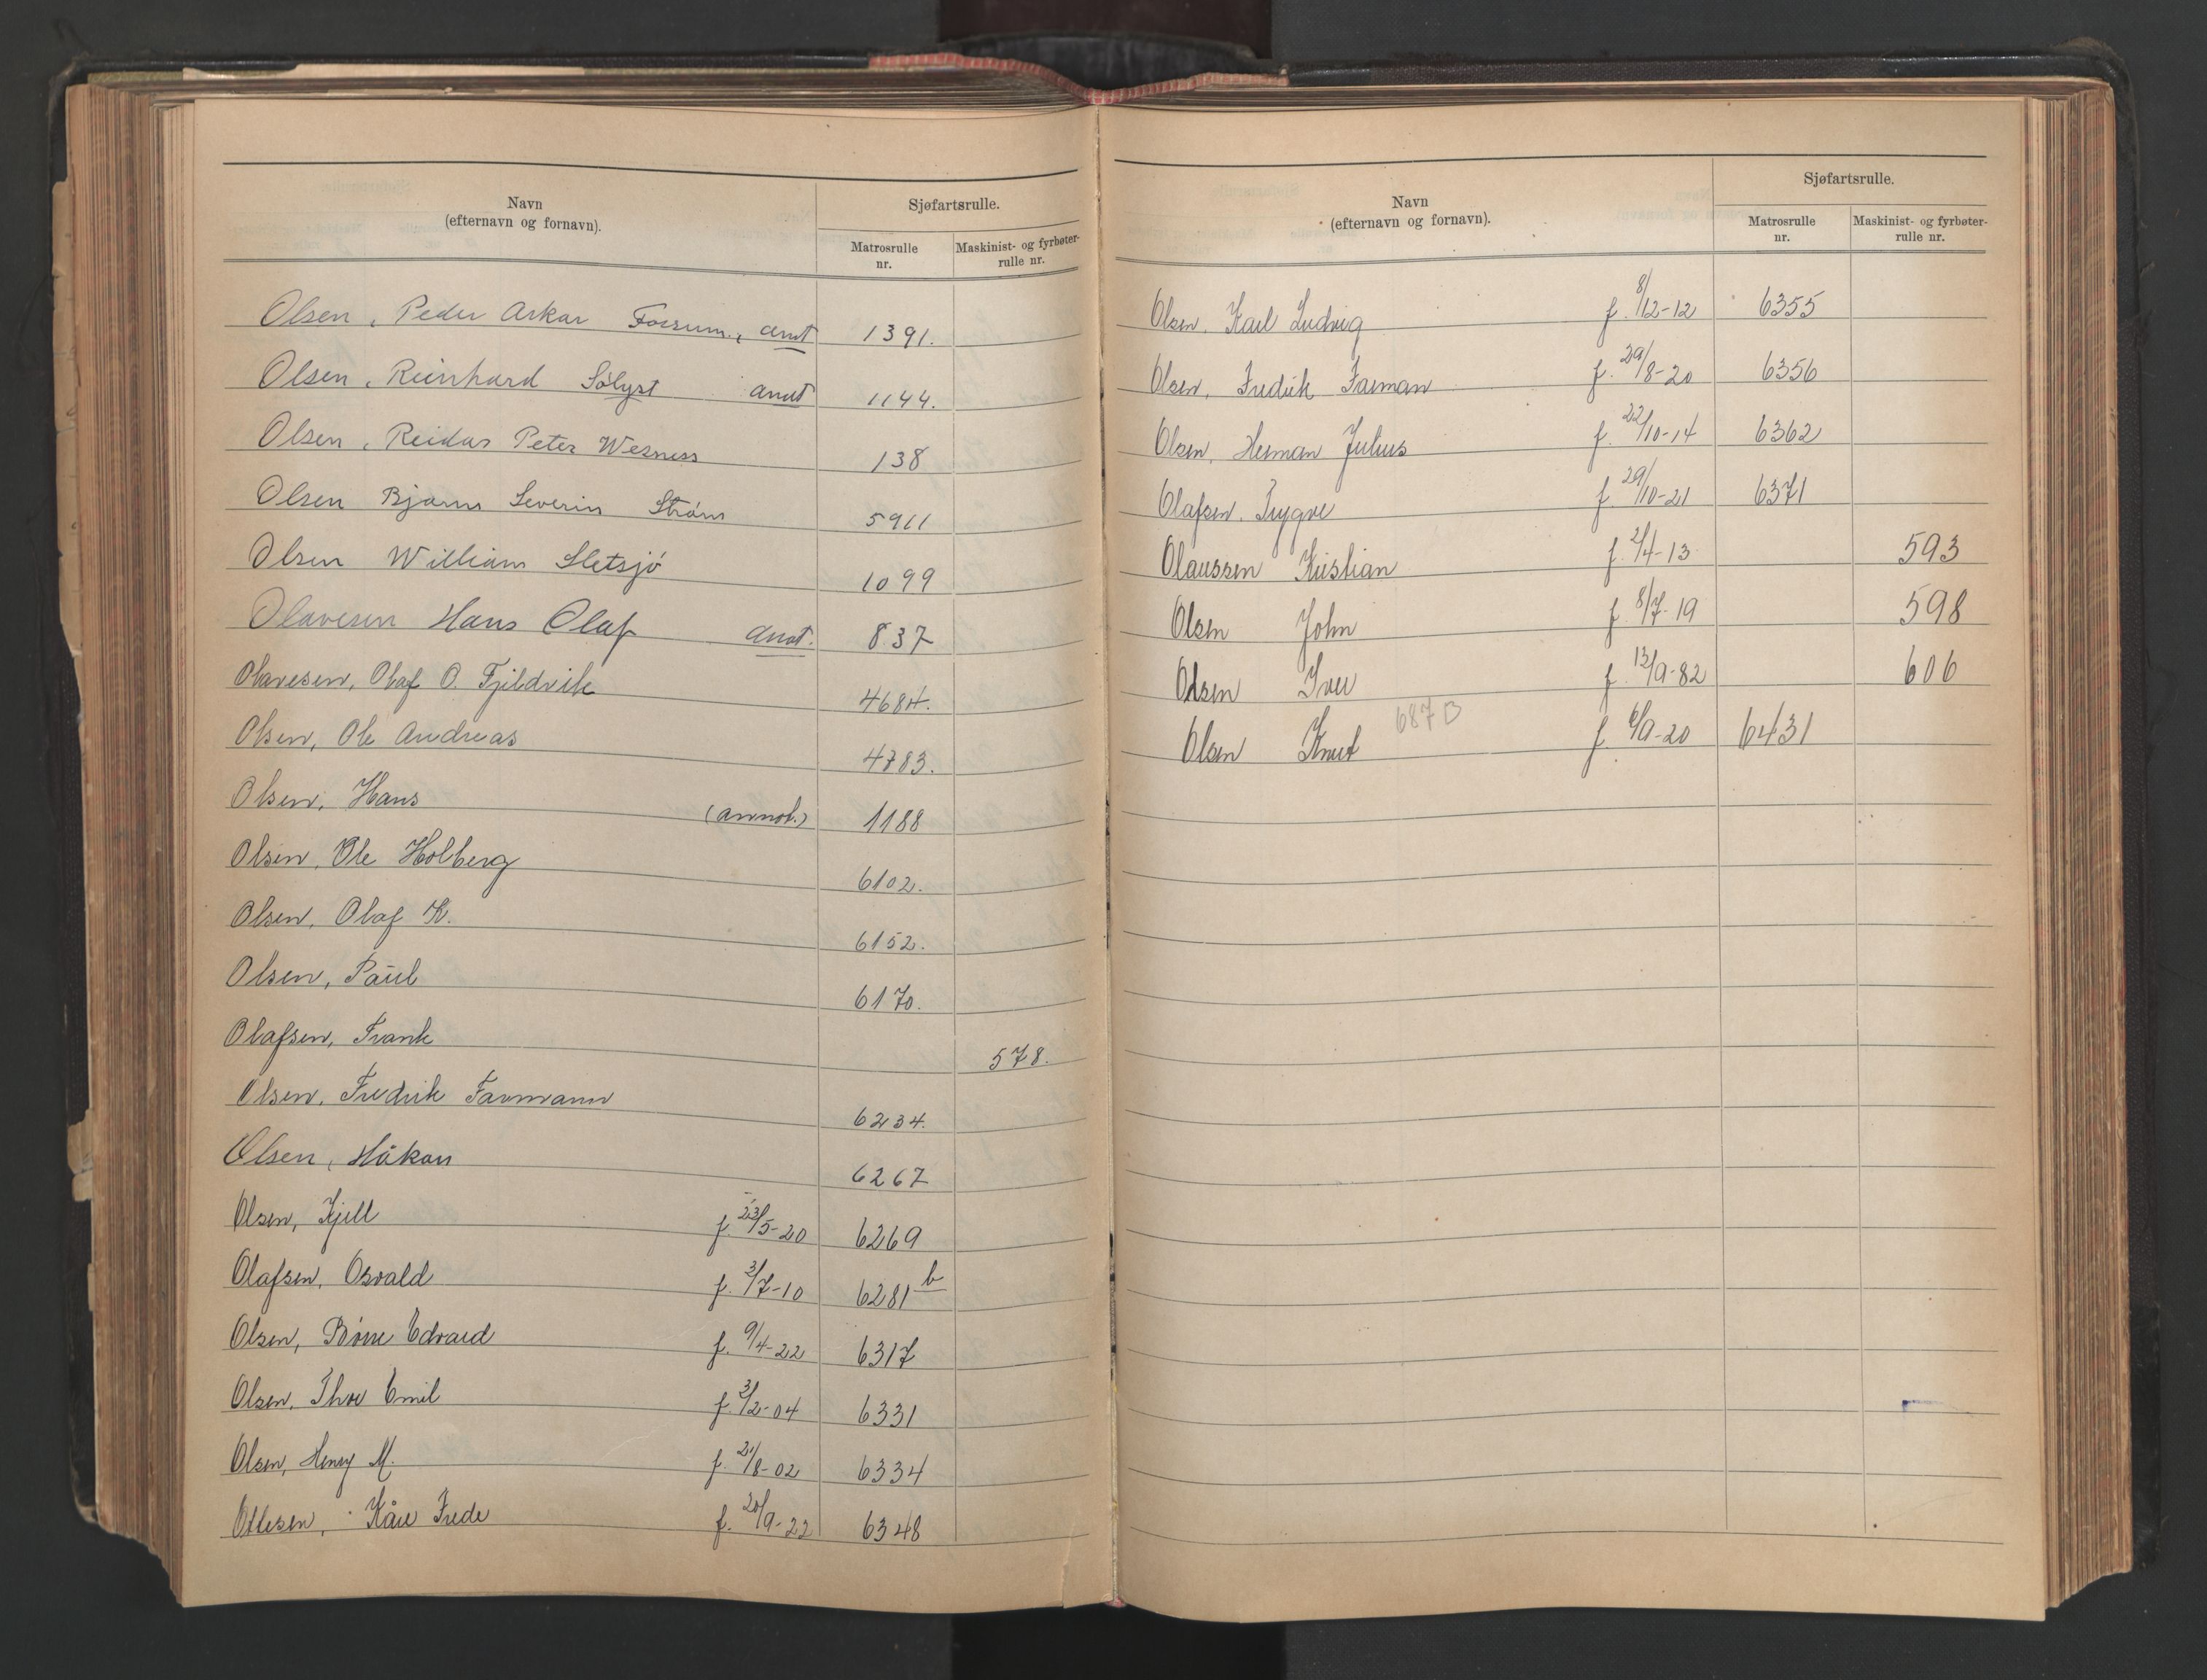 Navn
(efternavn og fornavn).
Sjøfartsrulle.
Matrosrulle
nr.
Maskinist- og fyrbøter-
rulle nr.
Olsen, Peder Askar Forsum, anot 1391.
Olsen, Reinhard Solyst anot 1144.
Olsen, Reidar Peter Wesness 138
Olsen Bjarne Severin Strøm 5911
Olsen William Sletsjö 1099
Olavesen Hans Olaf anot. 837
Olavesen, Olaf O. Fjeldvik 4684.
Olsen, Ole Andreas 4783.
Olsen, Hans (annot.) 1188
Olsen, Ole Holberg 6102.
Olsen, Olaf K. 6152.
Olsen, Paul 6170.
Olafsen, Frank 578.
Olsen, Fredrik Farmann 6234.
Olsen, Håkon 6267
Olsen, Kjell f. 23/5-20 6269
Olafsen, Osvald f. 3/7-10 6281 b
Olsen, Børre Edvard f. 9/4-22 6317
Olsen, Thor Emil f. 3/2-04 6331
Olsen, Henry M. f. 21/8-02 6334
Ottesen, Kåre Frede f. 20/9-22 6348
Navn
(efternavn og fornavn).
Sjøfartsrulle.
Matrosrulle
nr.
Maskinist- og fyrbøter-
rulle nr.
Olsen, Karl Ludvig f. 8/12-12 6355
Olsen, Fredrik Farman f. 29/8-20 6356
Olsen, Herman Julius f. 22/10-14 6362
Olafsen, Trygve f. 29/10-21 6371
Olaussen Kristian f. 2/4-13 593
Olsen John f. 8/7-19 598
Olsen Iver f. 13/9-82 606
Olsen Knut 687 B f. 6/9-20 6431